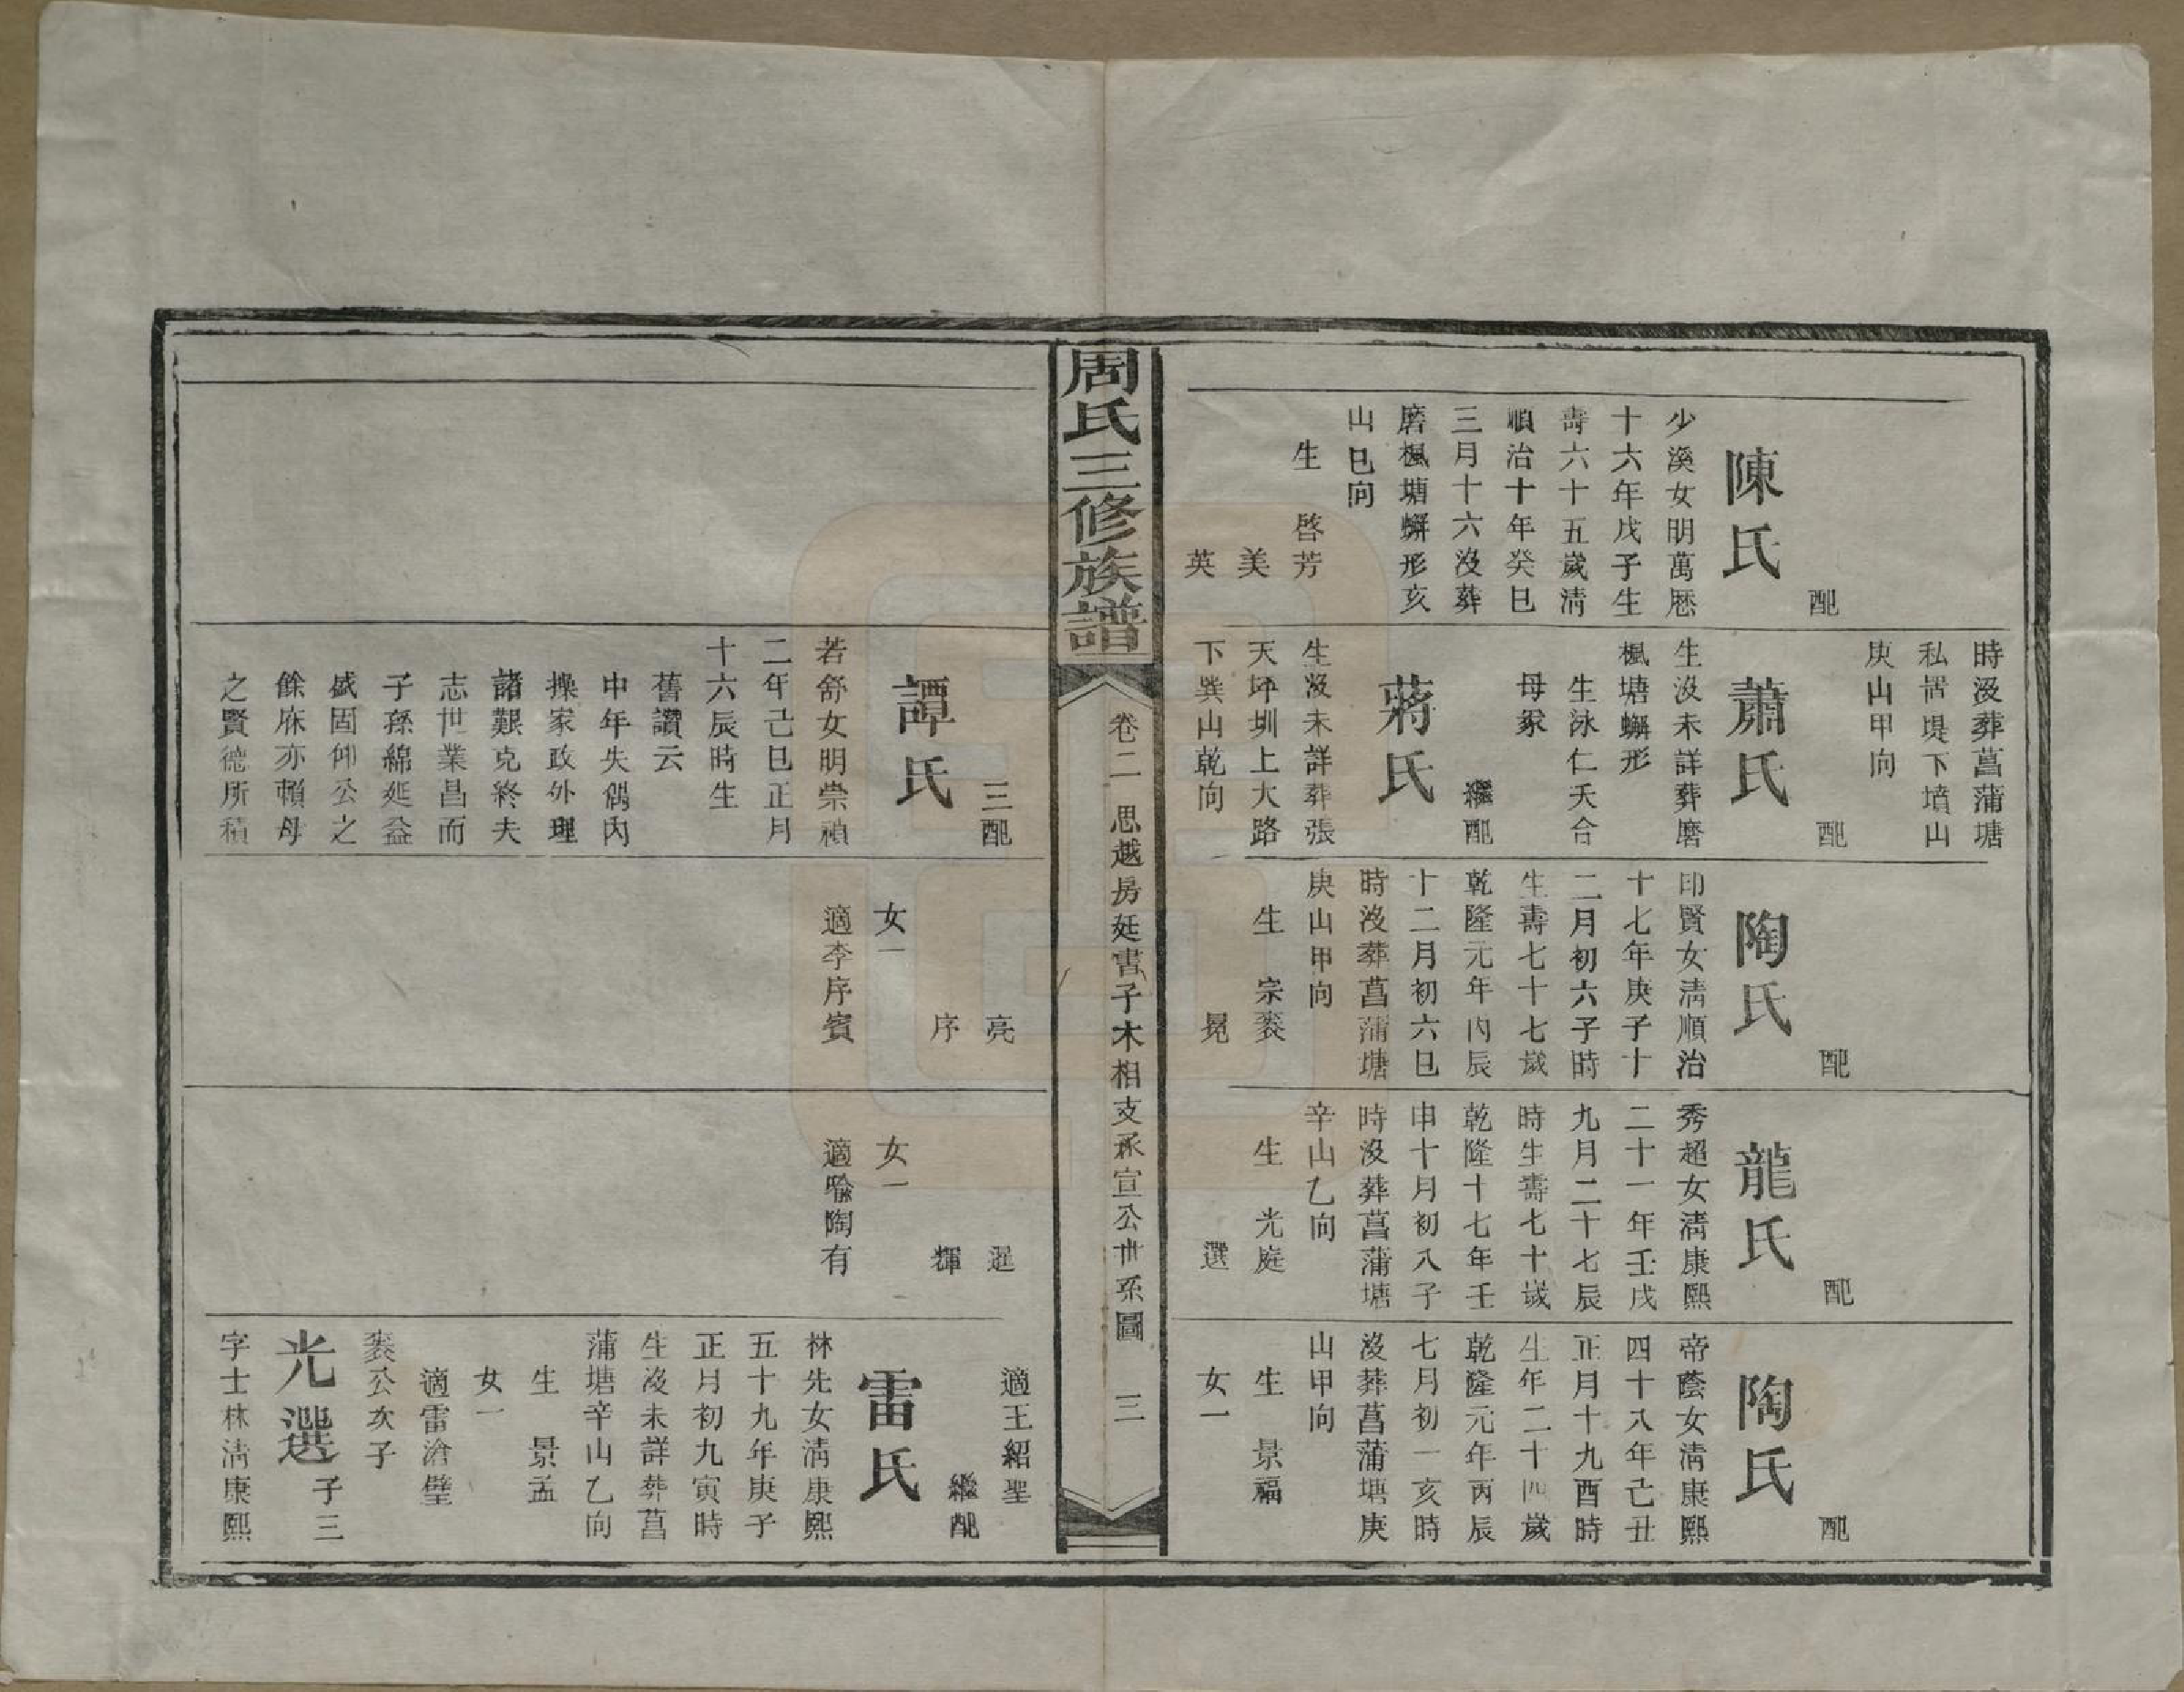 配
陳氏
少溪女明萬厯
十六年戊子生
壽六十五歲清
順治十年癸巳
三月十六沒葬
磨楓塘蠏形亥
山巳向
生 啓芳
美
英
時沒葬菖蒲塘
私當堤下墳山
庚山甲向
配
蕭氏
生沒未詳葬磨
楓塘蠏形
生泳仁夭合
母冢
繼配
蔣氏
生沒未詳葬張
天坪圳上大路
下巽山乾向
配
陶氏
印賢女清順治
十七年庚子十
二月初六子時
生壽七十七歲
乾隆元年丙辰
十二月初六巳
時沒葬菖蒲塘
庚山甲向
生 宗裘
冕
配
龍氏
秀超女清康熙
二十一年壬戌
九月二十七辰
時生壽七十歲
乾隆十七年壬
申十月初八子
時沒葬菖蒲塘
辛山乙向
生 光庭
選
配
陶氏
帝蔭女清康熙
四十八年己丑
正月十九酉時
生年二十四歲
乾隆元年丙辰
七月初一亥時
沒葬菖蒲塘庚
山甲向
生 景福
女一
周氏三修族譜
卷二 思越房廷書子木相支承宣公卋系圖 三
三配
譚氏
若舒女明崇禎
二年己巳正月
十六辰時生
舊讚云
中年失偶內
操家政外理
諸艱克終夫
志世業昌而
子孫綿延益
盛固仰公之
餘庥亦賴母
之賢德所積
亮
序
女一
適李序賓
暹
輝
女一
適喻陶有
適王紹聖
繼配
雷氏
林先女清康熙
五十九年庚子
正月初九寅時
生沒未詳葬菖
蒲塘辛山乙向
生 景孟
女一
適雷滄璧
裘公次子
光選 子三
字士林清康熙